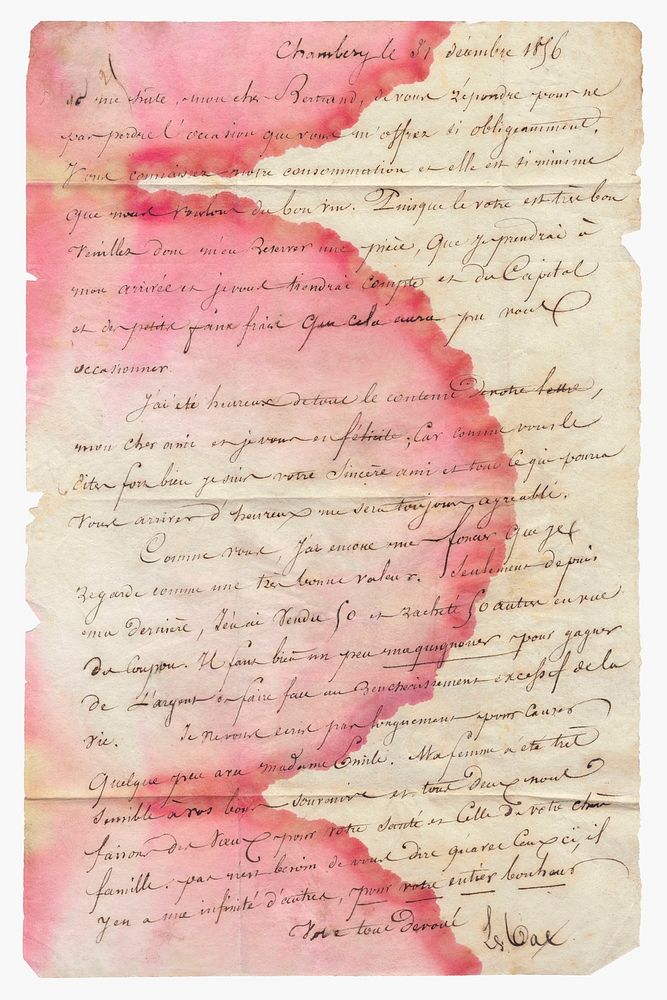 Chambery le 31 décembre 1856
me hâte, mon cher Bertrand, de vous répondre pour ne
pas perdre l'occasion que vous m'offrez si obligeamment.
Vous connaissez notre consommation et elle est si minime
que nous voulons du bon vin. Puisque le votre est très bon
Veuillez donc m'en reserver une pièce, que je prendrai à
mon arrivée et je vous tiendrai compte et du Capital
et des petits faux frais que cela aura pu vous
occasionner.
J'ai été heureux de tout le contenu de votre lettre,
mon cher ami et je vous en félicite, Car comme vous le
dites fort bien je suis votre sincère ami et tout ce qui pourra
Vous arriver d'heureux me sera toujours agréable.
Comme vous, j'ai encore mes foncier que je
regarde comme une très bonne valeur. Seulement depuis
ma dernière, j'en ai vendu 50 et racheté 50 autres en vue
du Coupon. Il faut bien un peu maquignoner pour gagner
de L'argent et faire face au renchérissement excessif de la
vie. Je ne vous écris pas longuement pour causer
Quelque peu avec madame Emile. Ma femme a été très
sensible à vos bons souvenirs et tous deux nous
faisons des Vœux pour votre santé et Celle de votre chère
famille. pas n'est besoin de vous dire qu'avec Ceux ci, il
y en a une infinité d'autres, pour votre entier bonheur
Votre tout dévoué